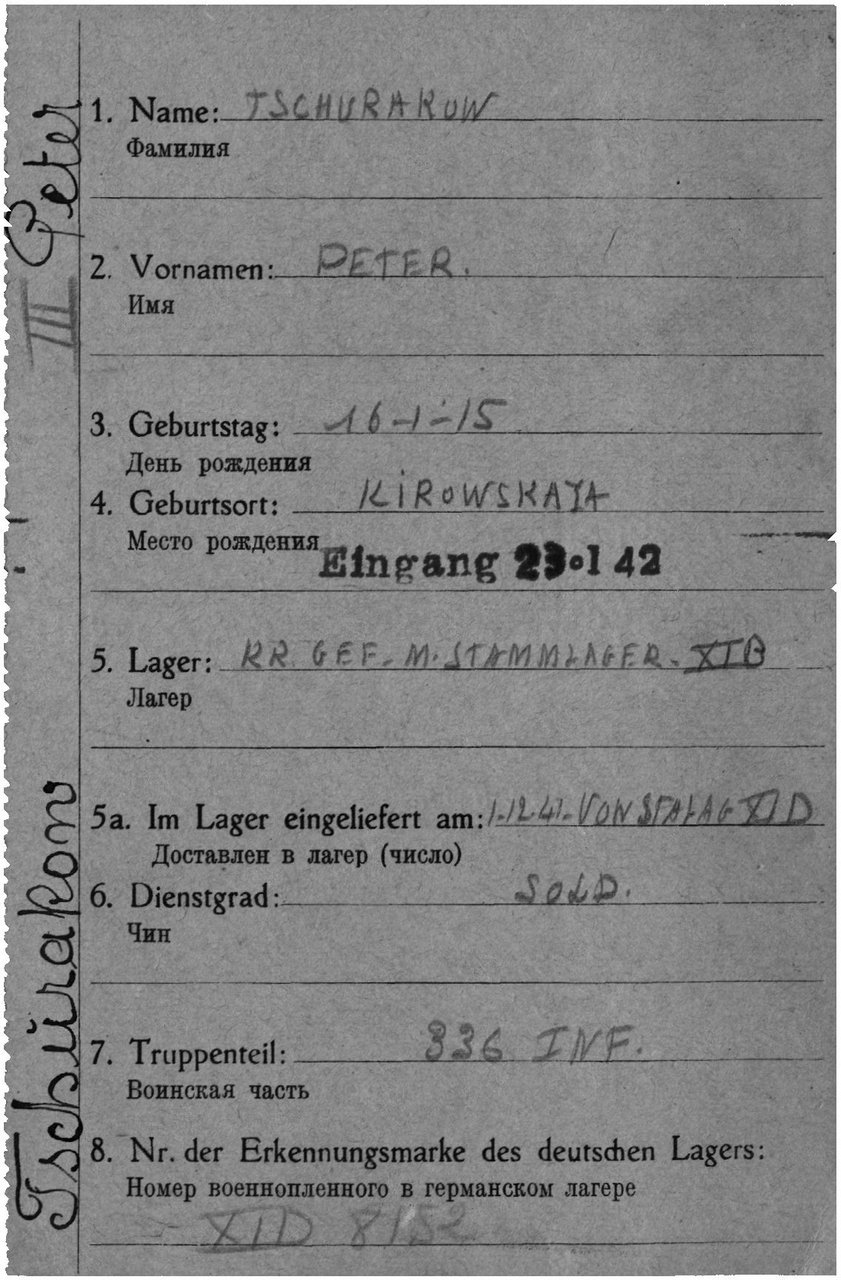 Tschurakow Peter
III
1. Name: TSCHURAKOW
Фамилия
2. Vornamen: PETER.
Имя
3. Geburtstag: 16-1-15
День рождения
4. Geburtsort: KIROWSKAJA
Место рождения
Eingang 23.1 42
5. Lager: KR. GEF. M. STAMMLAGER. XIB
Лагер
5a. Im Lager eingeliefert am: 1-12-41-VON STALAG XI D
Доставлен в лагер (число)
6. Dienstgrad: SOLD.
Чин
7. Truppenteil: 336 INF.
Воинская часть
8. Nr. der Erkennungsmarke des deutschen Lagers:
Номер военнопленного в германском лагере
XID 8152